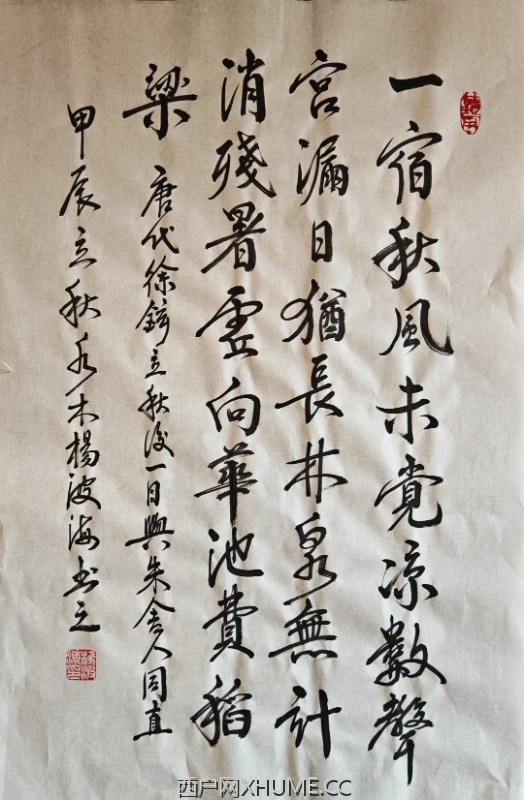 一宿秋風未覺凉數聲
宮漏日猶長林泉無計
消殘署虛向華池費稻
梁 唐代徐鉉立秋後一日與朱舍人同直
甲辰立秋水木楊波海书之
西户网XHUME.CC